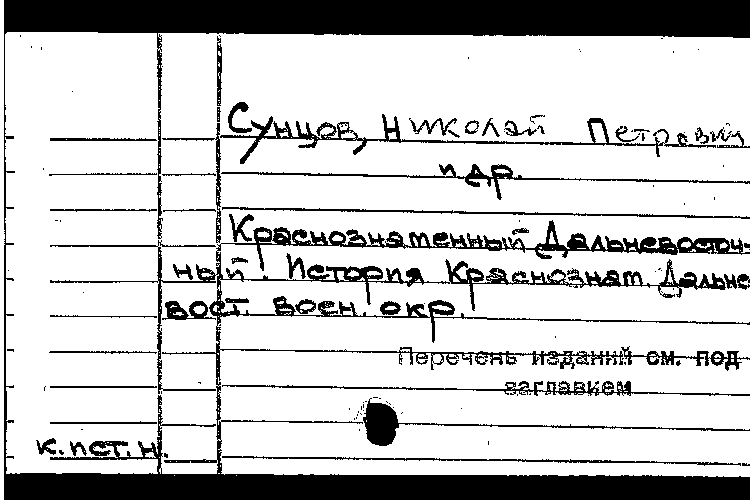 Сунцов, Николай Петрович
и др.
Краснознаменный Дальневосточ-
ный. История Краснознам. Дальне-
вост. воен. окр.
Перечень изданий см. под
заглавием
к. ист. н.